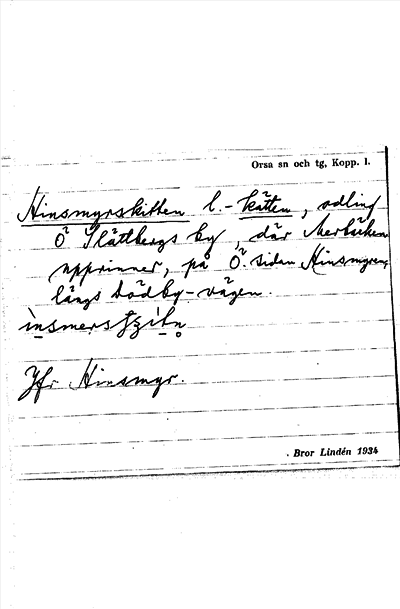 Orsa sn och tg, Kopp. l.
Hinsmyrskitten l. -kätten, odling
Ö Slättbergs by, där Merbäcken
upprinner, på Ö. sidan Hinsmyren,
längs Bödby-vägen.
Jfr Hinsmyr.
Bror Lindén 1934